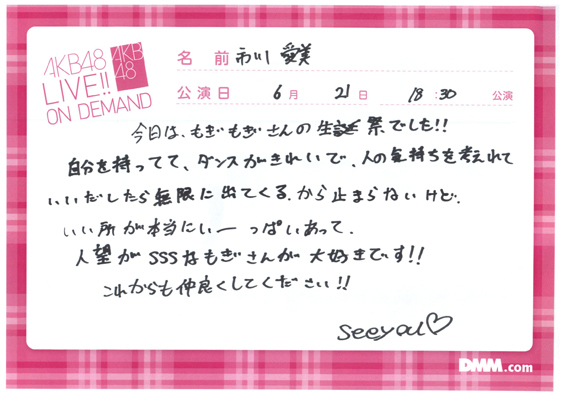 AKB48
LIVE!!
ON DEMAND
AKB
48
名 前 市川 愛美
公演日 6月 21日 18:30 公演
今日は、もぎもぎさんの生誕祭でした!!
自分を持ってて、ダンスがきれいで、人の気持ちを考えれて
いいだしたら無限に出てくる、から止まらないけど、
いい所が本当にいーっぱいあって、
人望がSSSなもぎさんが大好きです!!
これからも仲良くしてください!!
seeyou♡
DMM.com